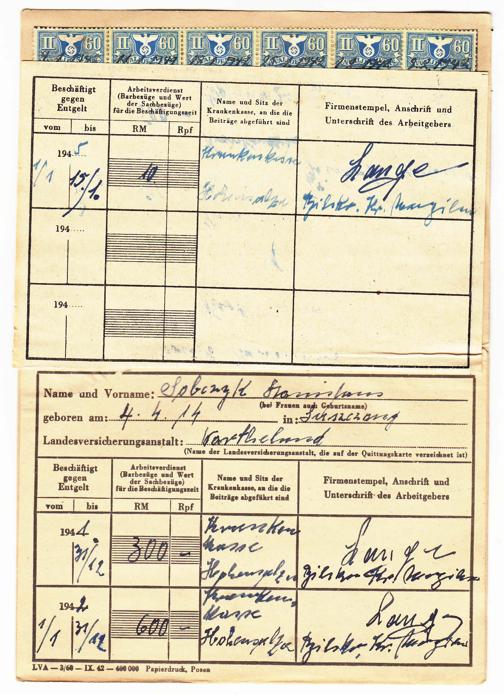 II 60 II 60 II 60 II 60 II 60 II 60
Beschäftigt gegen Entgelt
vom bis
Arbeitsverdienst (Barbezüge und Wert der Sachbezüge) für die Beschäftigungszeit
RM Rpf
Name und Sitz der Krankenkasse, an die die Beiträge abgeführt sind
Firmenstempel, Anschrift und Unterschrift des Arbeitgebers
1945
1/1 15/1. 10. Krankenkasse Lange
Hohensalza
194.....
194.....
Name und Vorname: Sobczyk Stanislaus
(bei Frauen auch Geburtsname)
geboren am: 4. 4. 14 in:
Landesversicherungsanstalt: Wartheland
(Name der Landesversicherungsanstalt, die auf der Quittungskarte verzeichnet ist)
Beschäftigt gegen Entgelt
vom bis
Arbeitsverdienst (Barbezüge und Wert der Sachbezüge) für die Beschäftigungszeit
RM Rpf
Name und Sitz der Krankenkasse, an die die Beiträge abgeführt sind
Firmenstempel, Anschrift und Unterschrift des Arbeitgebers
1941
31/12 300 – Kranken
kasse Lange
Hohensalza
1942
1/1 31/12 600 – Kranken
kasse Lange
Hohensalza
LVA – 3/60 – IX. 42 – 400 000 Papierdruck, Posen